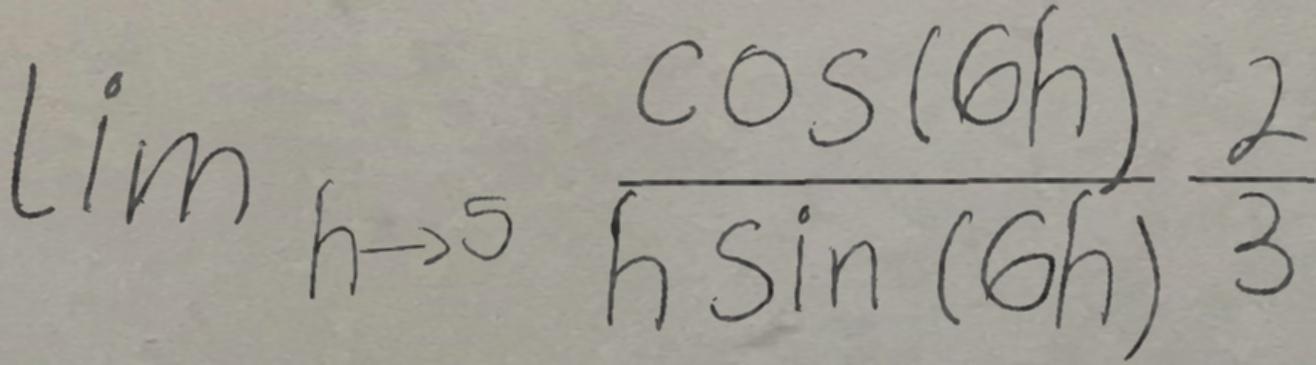 \lim_{h \to 5} \frac{\cos(6h)}{h \sin(6h)} \frac{2}{3}